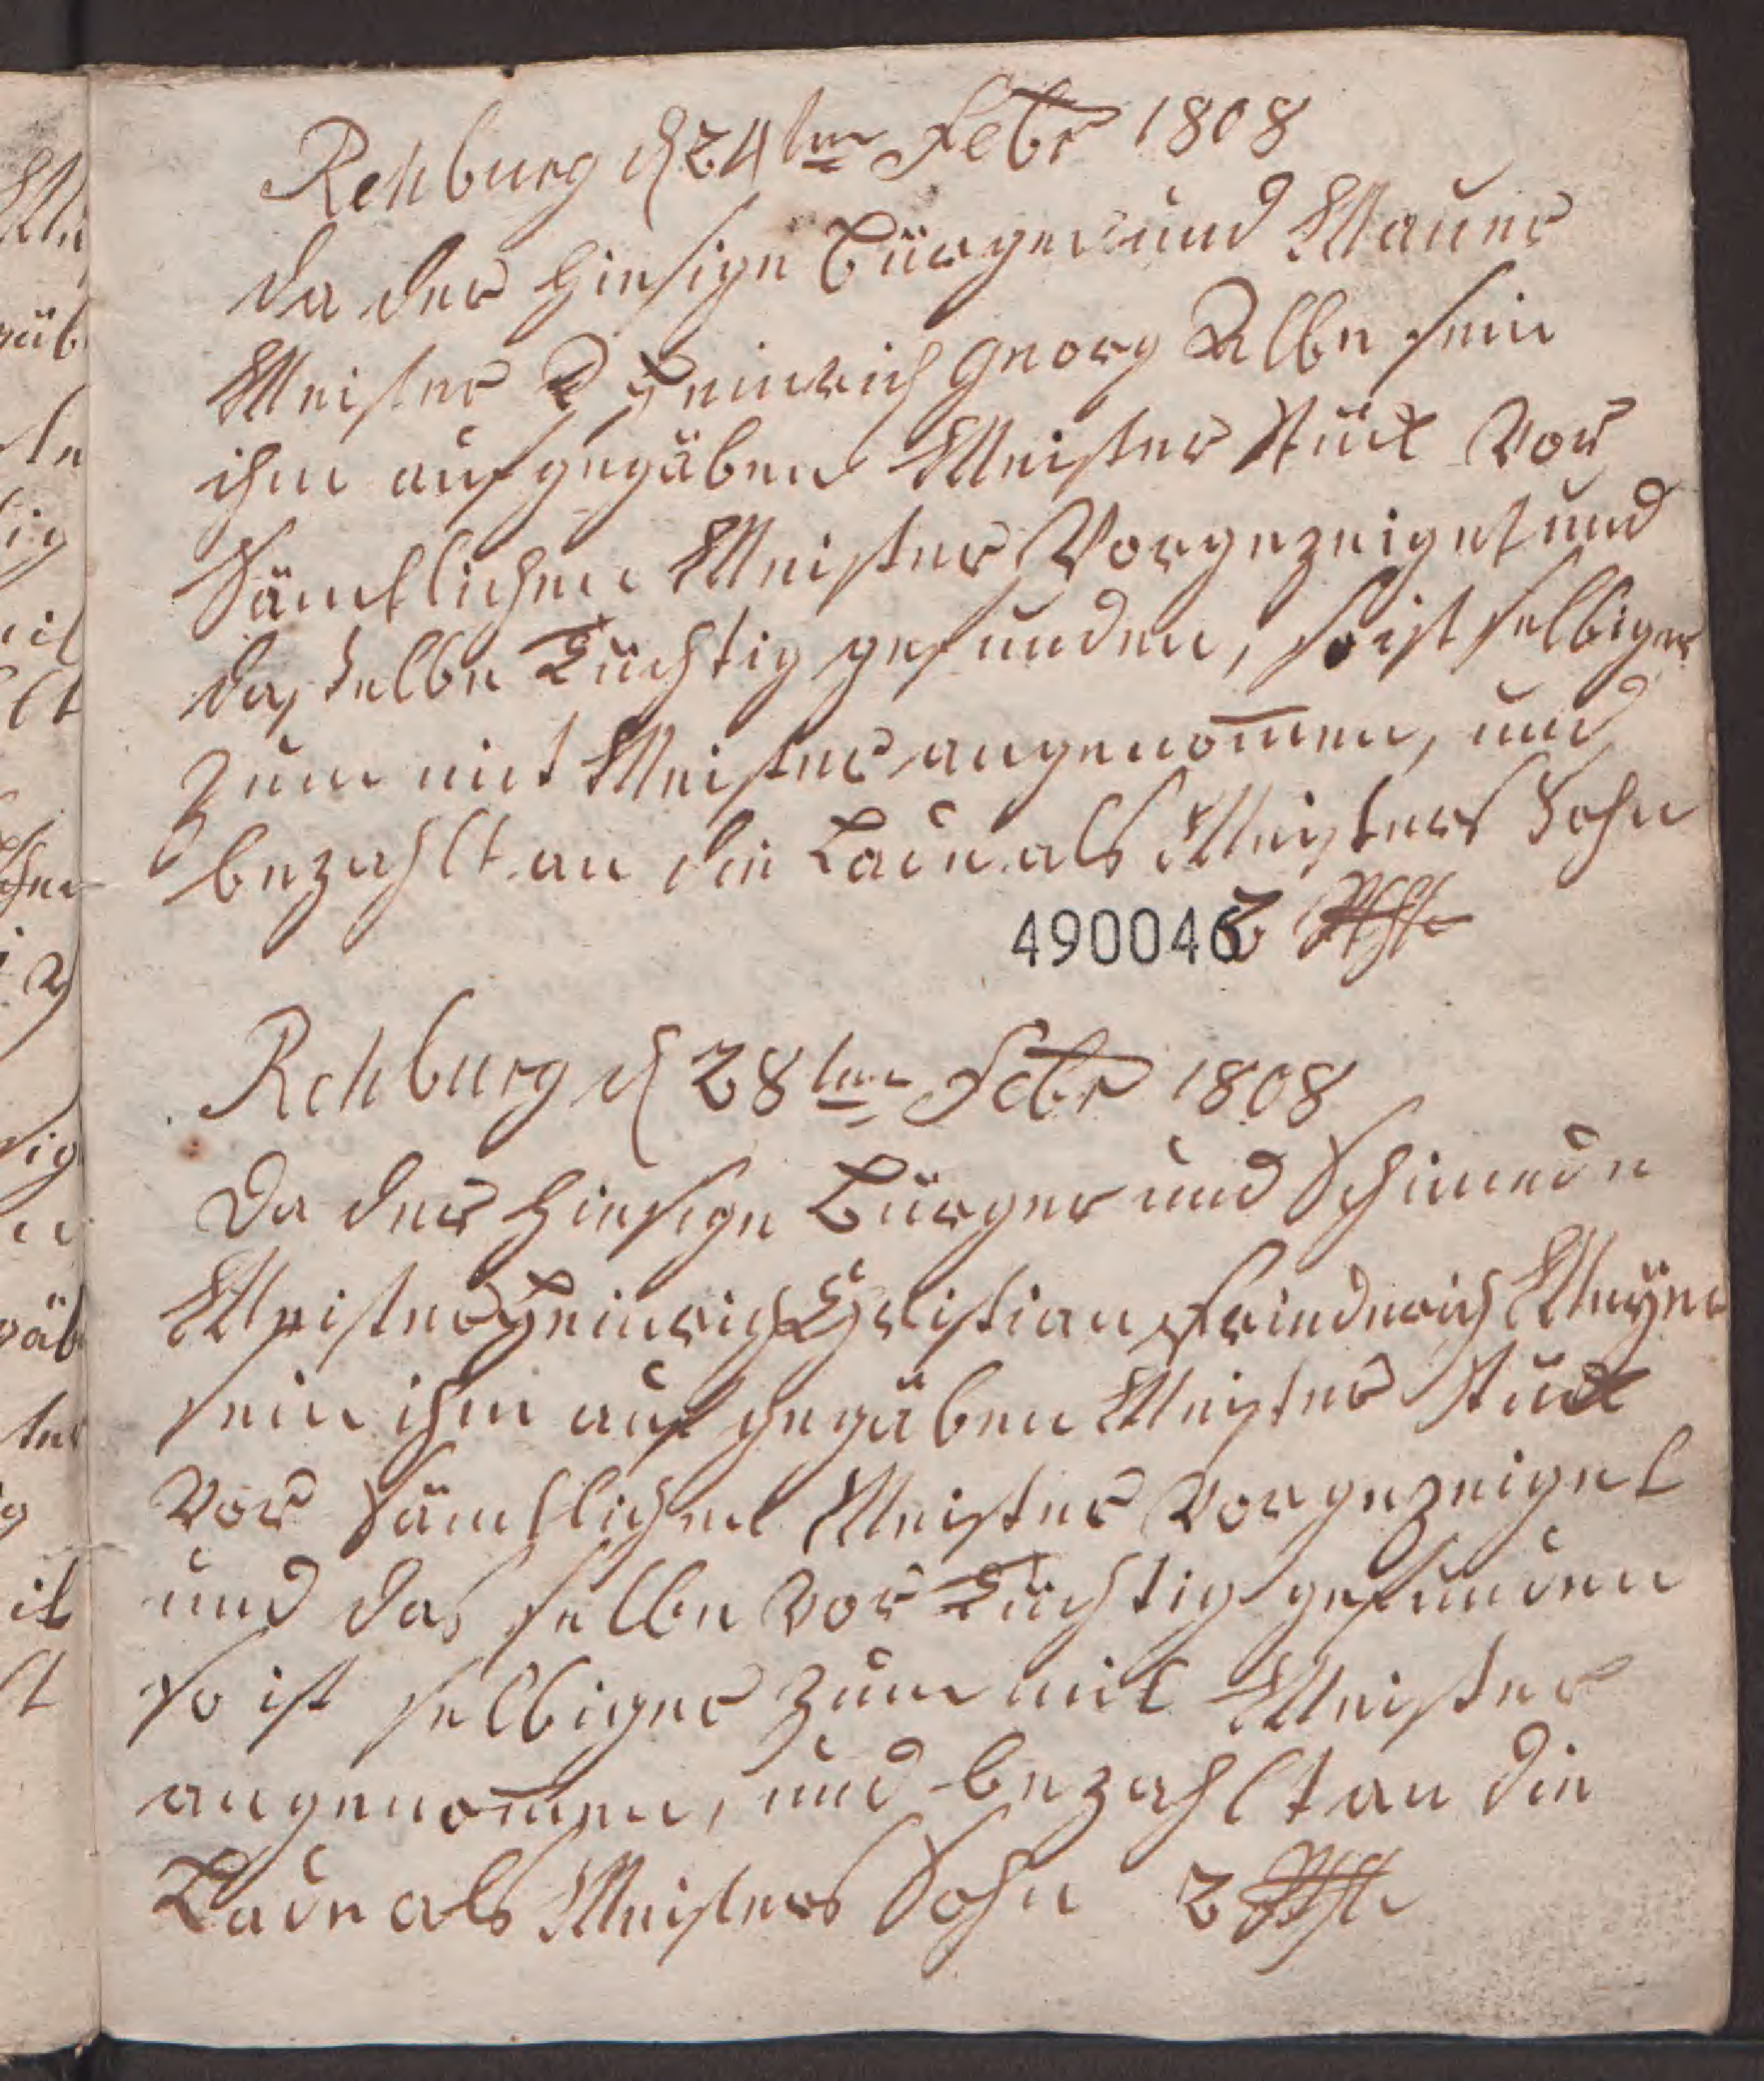 Rehburg d 24ten Febr 1808
da der hiesige Bürger und Mauer
Meister Heinrich Georg Albe sein
ihm aufgegäben Meister Stück Vor
Sämtlichen Meister Vorgezeiget und
dasselbe Tüchtig gefunden, so ist selbiger
zum mit Meister angenom̅en, und
bezahlt an die Lade als Meisters Sohn
2 Rthlr
490046
Rehburg d 28ten Febr 1808
Da der hiesige Bürger und Schmiede
Meister Heinrich Christian Friederich Meyer
sein ihm auf gegäben Meister Stück
Vor Sämtlichen Meister Vorgezeiget
und das selbe Vor Tüchtig gefunden
so ist selbiger zum mit Meister
angenom̅en, und bezahlt an die
Lade als Meisters Sohn 2 Rthlr